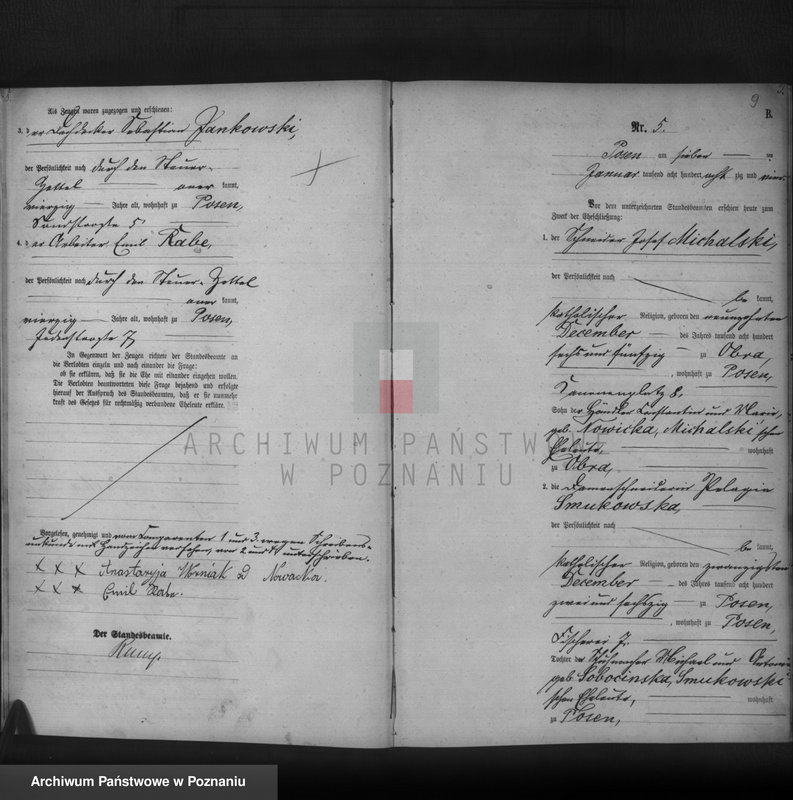 Als Zeugen waren zugezogen und erschienen:
3. der Dachdecker Sebastian Jankowski,
der Persönlichkeit nach durch den Steuer-
Zettel aner kannt,
vierzig Jahre alt, wohnhaft zu Posen,
Sandstraße 5
4. der Arbeiter Emil Rabe,
der Persönlichkeit nach durch den Steuer-Zettel
aner kannt,
vierzig Jahre alt, wohnhaft zu Posen,
7,
In Gegenwart der Zeugen richtete der Standesbeamte an
die Verlobten einzeln und nach einander die Frage:
ob sie erklären, daß sie die Ehe mit einander eingehen wollen.
Die Verlobten beantworteten diese Frage bejahend und erfolgte
hierauf der Ausspruch des Standesbeamten, daß er sie nunmehr
kraft des Gesetzes für rechtmäßig verbundene Eheleute erkläre.
Vorgelesen, genehmigt und vom Comparenten 1 und 3 wegen Schreibens-
unkunde mit Handzeichen versehen, von 2 und 4 unterschrieben.
x x x Anastazyja Woźniak Nowacka.
x x x Emil Rabe.
Der Standesbeamte.
9
B.
Nr. 5.
Posen am sieben ten
Januar tausend acht hundert acht zig und vier.
Vor dem unterzeichneten Standesbeamten erschien heute zum
Zweck der Eheschließung:
1. der Schneider Josef Michalski,
der Persönlichkeit nach
be kannt,
katholischer Religion, geboren den neunzehnten
December des Jahres tausend acht hundert
sechs und fünfzig zu Obra,
, wohnhaft zu Posen,
Kanonenplatz 8,
Sohn der Händler Constantin und Marie,
geb. Nowicka, Michalski'schen
Eheleute, wohnhaft
zu Obra,
2. die Damenschneiderin Pelagia
Smukowska,
der Persönlichkeit nach
be kannt,
katholischer Religion, geboren den zwanzigsten
December des Jahres tausend acht hundert
zwei und sechszig zu Posen,
, wohnhaft zu Posen,
Fischerei 7,
Tochter der Schuhmacher Michael und Antonie
geb. Sobocinska, Smukowski'
schen Eheleute, wohnhaft
zu Posen,
ARCHIWUM PAŃSTWOWE
W POZNANIU
Archiwum Państwowe w Poznaniu